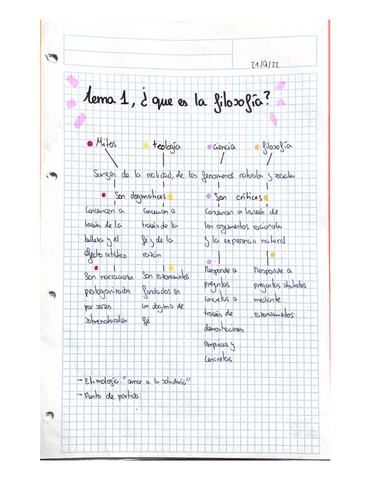 21/9/22
tema 1, ¿que es la filosofía?
Mitos teología ciencia filosofía
Surgen de la realidad, de los fenomenos naturales y sociales
Son dogmaticos Son criticos
Convencen a
través de la
belleza y el
efecto artistico
Convencen a
través de la
fé y de la
razón
Convencen a través de
los argumentos racionales
y la experiencia natural
Son narraciones
protagonizadas
por seres
sobrenaturales
Son razonamientos
fundados en
un dogma de
fé
Responde a
preguntas
concretas a
través de
demostraciones
empiricas y
concretas
Responde a
preguntas
mediante
razonamientos
- Etimología "amor a la sabiduría"
- Punto de partida.